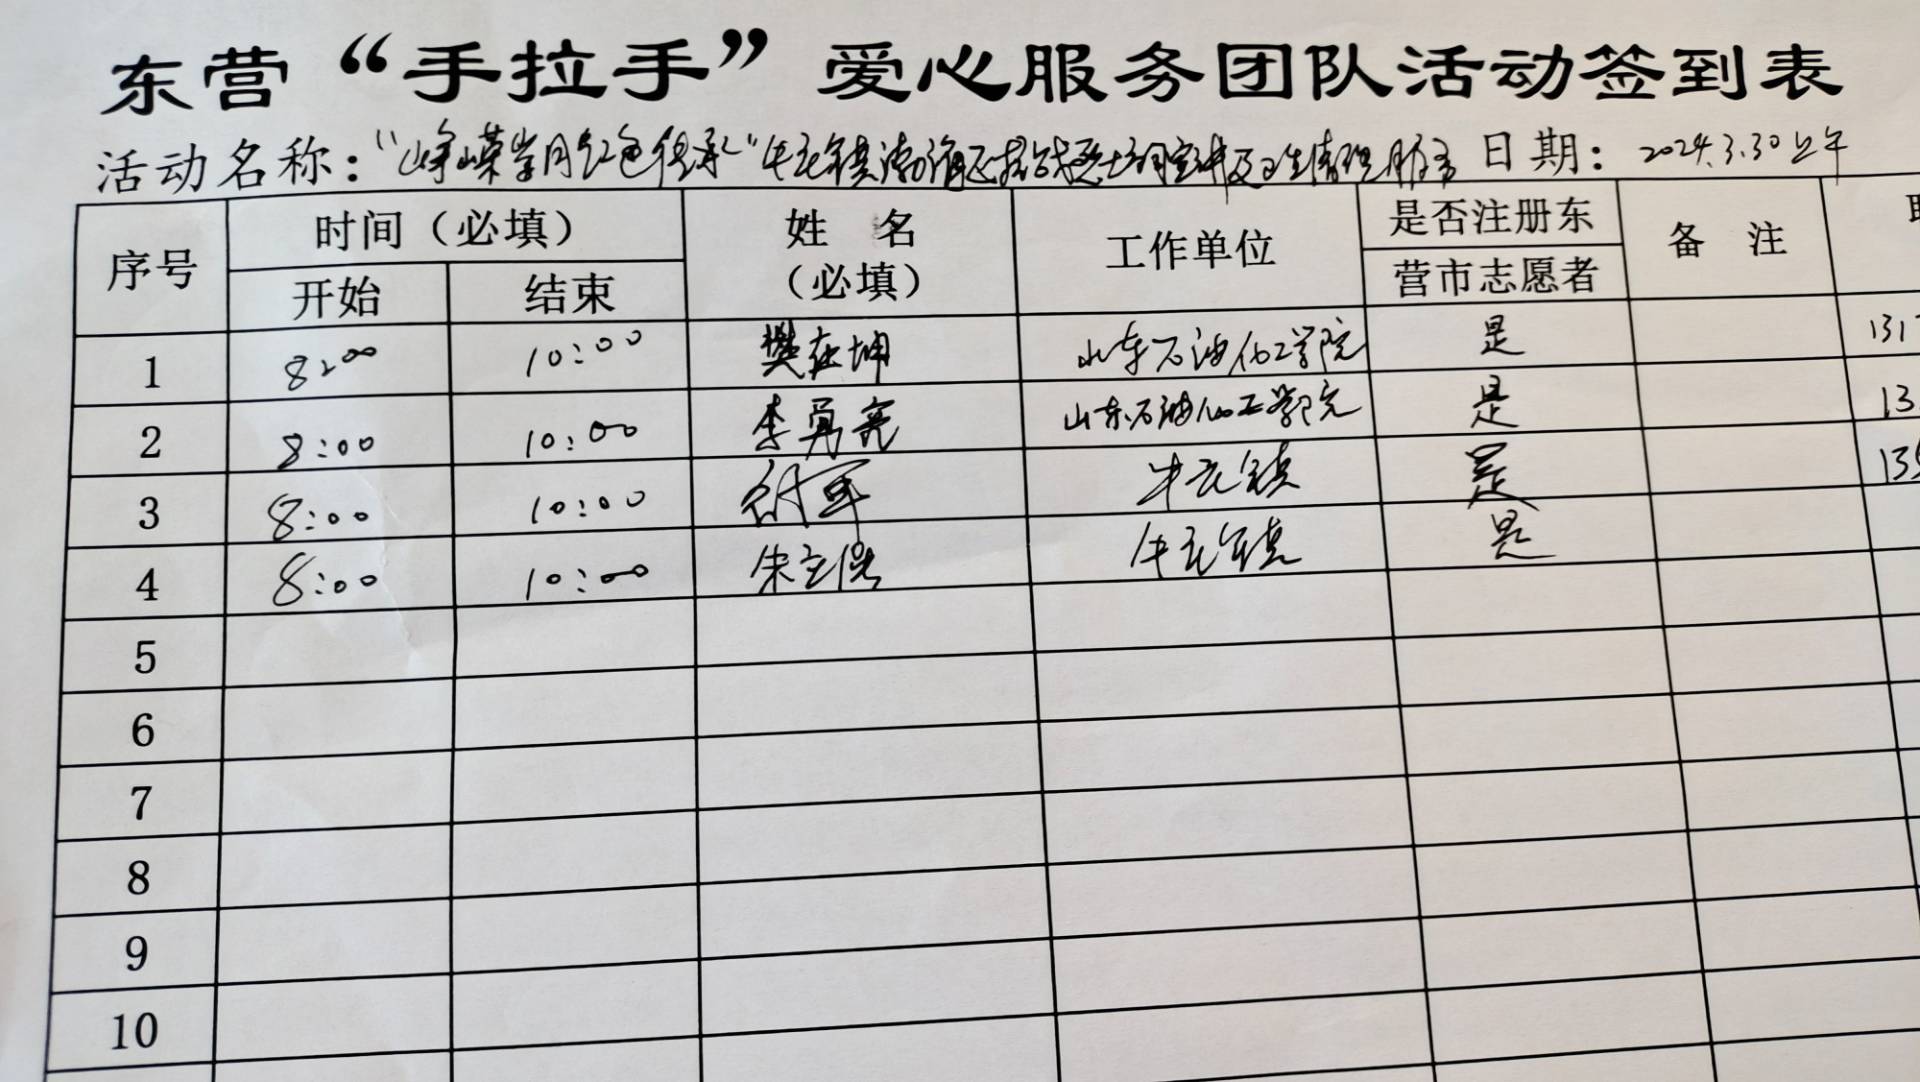 东营“手拉手”爱心服务团队活动签到表
活动名称：“峥嵘岁月红色传承”牛庄镇渤海区抗战烈士祠宣讲及卫生清理服务 日期：2024.3.30上午
序号 时间（必填） 姓 名（必填） 工作单位 是否注册东营市志愿者 备 注
开始 结束
1 8:00 10:00 樊在坤 山东石油化工学院 是 131
2 8:00 10:00 李勇亮 山东石油化工学院 是 13
3 8:00 10:00 付军 牛庄镇 是 135
4 8:00 10:00 宋立 牛庄镇 是
5
6
7
8
9
10